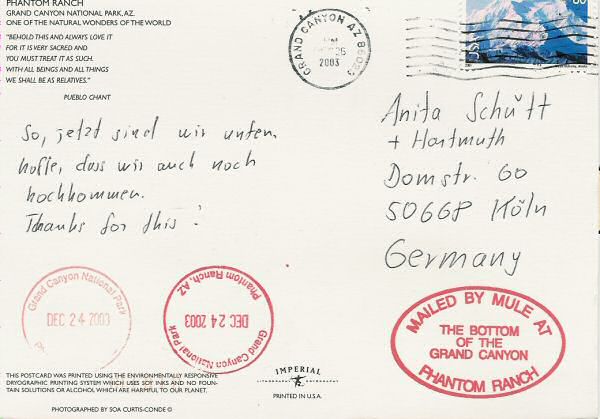 PHANTOM RANCH
GRAND CANYON NATIONAL PARK, AZ.
ONE OF THE NATURAL WONDERS OF THE WORLD
"BEHOLD THIS AND ALWAYS LOVE IT
FOR IT IS VERY SACRED AND
YOU MUST TREAT IT AS SUCH.
WITH ALL BEINGS AND ALL THINGS
WE SHALL BE AS RELATIVES."
PUEBLO CHANT
GRAND CANYON AZ 86023
2003
USA
So, jetzt sind wir unten,
hoffe, dass wir auch noch
hochkommen.
Thanks for this!
Anita Schütt
+ Hartmuth
Domstr. 60
50668 Köln
Germany
Grand Canyon National Park
DEC 24 2003
Phantom Ranch, AZ
DEC 24 2003
Grand Canyon National Park
MAILED BY MULE AT
THE BOTTOM
OF THE
GRAND CANYON
PHANTOM RANCH
THIS POSTCARD WAS PRINTED USING THE ENVIRONMENTALLY RESPONSIVE
DRYOGRAPHIC PRINTING SYSTEM WHICH USES SOY INKS AND NO FOUN-
TAIN SOLUTIONS OR ALCOHOL WHICH ARE HARMFUL TO OUR PLANET.
IMPERIAL
PRINTED IN U.S.A.
PHOTOGRAPHED BY SOA CURTIS-CONDE ©